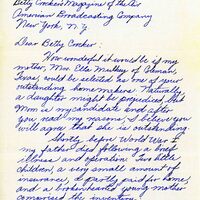 Betty Crocker Magazine of the Air
American Broadcasting Company
New York, N.Y.
Dear Betty Crocker:
How wonderful it would be if my
mother, Mrs. Etta Mulkey of Coleman,
Texas, could be selected as one of your
outstanding homemakers. Naturally
a daughter might be prejudiced, but
Mom is my candidate and after
you read my reasons, I believe you
will agree that she is outstanding.
Shortly before World War I
my father died following a brief
illness and operation. Two little
children, a very small amount of
insurance, a partly paid for home,
and a brokenhearted young mother
comprised the inventory.